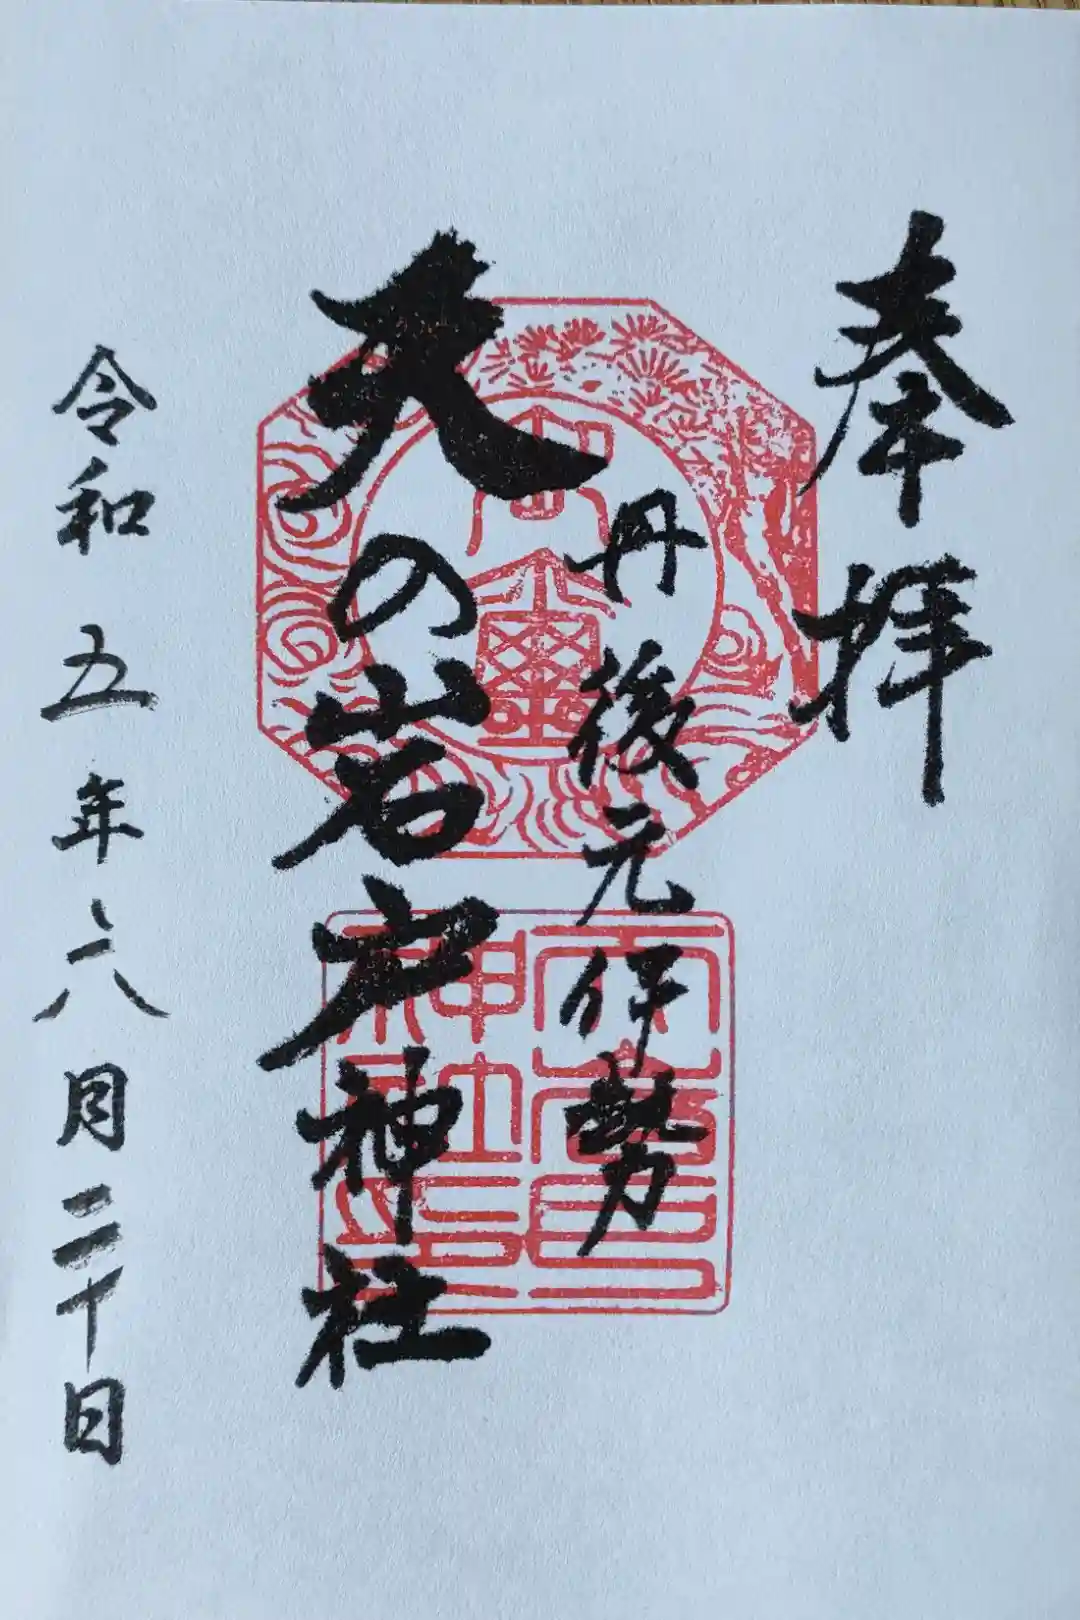 奉拝
丹後元伊勢
天の岩戸神社
令和五年六月二十日